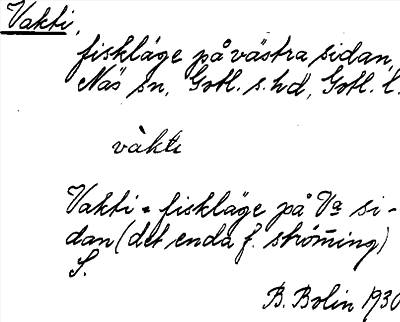 Vakti,
fiskläge på västra sidan,
Näs sn, Gotl. s. hd, Gotl. l.
vàkti
Vakti = fiskläge på Va si-
dan (det enda f. strömming)
S.
B. Bolin 1930